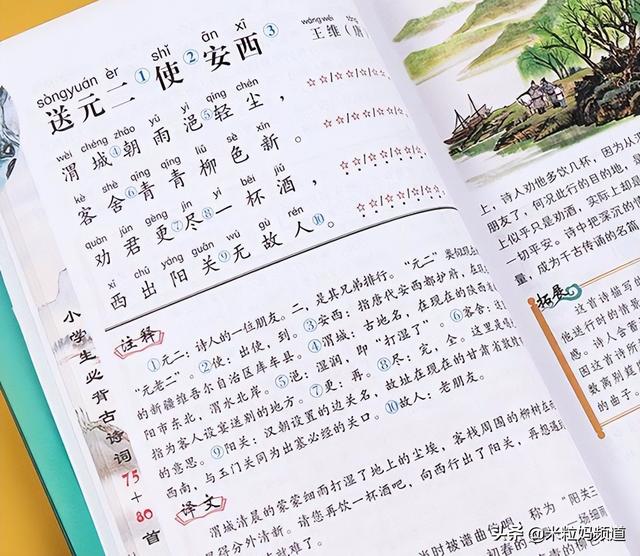 sòngyuán èr shǐ ān xī
送元二①使②安西③
wángwéi
王维（唐）
wèi chéng zhāo yǔ yì qīng chén
渭城④朝雨浥⑤轻尘，
kè shè qīng qīng liǔ sè xīn
客舍⑥青青柳色新。
quàn jūn gèng jìn yì bēi jiǔ
劝君更⑦尽⑧一杯酒，
xī chū yáng guān wú gù rén
西出阳关⑨无故人⑩。
注释
①元二：诗人的一位朋友。二，是其兄弟排行。“元二”类似现在
“元老二”。②使：出使，到。③安西：指唐代安西都护府，在现在
的新疆维吾尔自治区库车县。④渭城：古地名，在现在的陕西
阳市东北，渭水北岸。⑤浥：湿润，即“打湿了”。⑥客舍，这
指为客人设宴送别的地方。⑦更：再。⑧尽：完，全。这里是
的意思。⑨阳关：汉朝设置的边关名，故址在现在的甘肃省
西南，与玉门关同为出塞必经的关口。⑩故人：老朋友。
译文
渭城清晨的蒙蒙细雨打湿了地上的尘埃，客栈周围的柳树
显得分外清新。请您再饮一杯酒吧，向西行出了阳关，再想
就难了。
时被谱曲
称为“阳关三
小学生必背古诗词75+80首
上，诗人劝他多饮几杯，因为从
朋友了，何况此行的目的地，是
上似乎只是劝酒，实际上却是
一切平安。诗中把深沉的情
量，成为千古传诵的名篇
拓展
这首诗描写
他送行时的情
感。诗人含蓄
因这首诗所
数离别
的曲子。
头条 @米粒妈频道